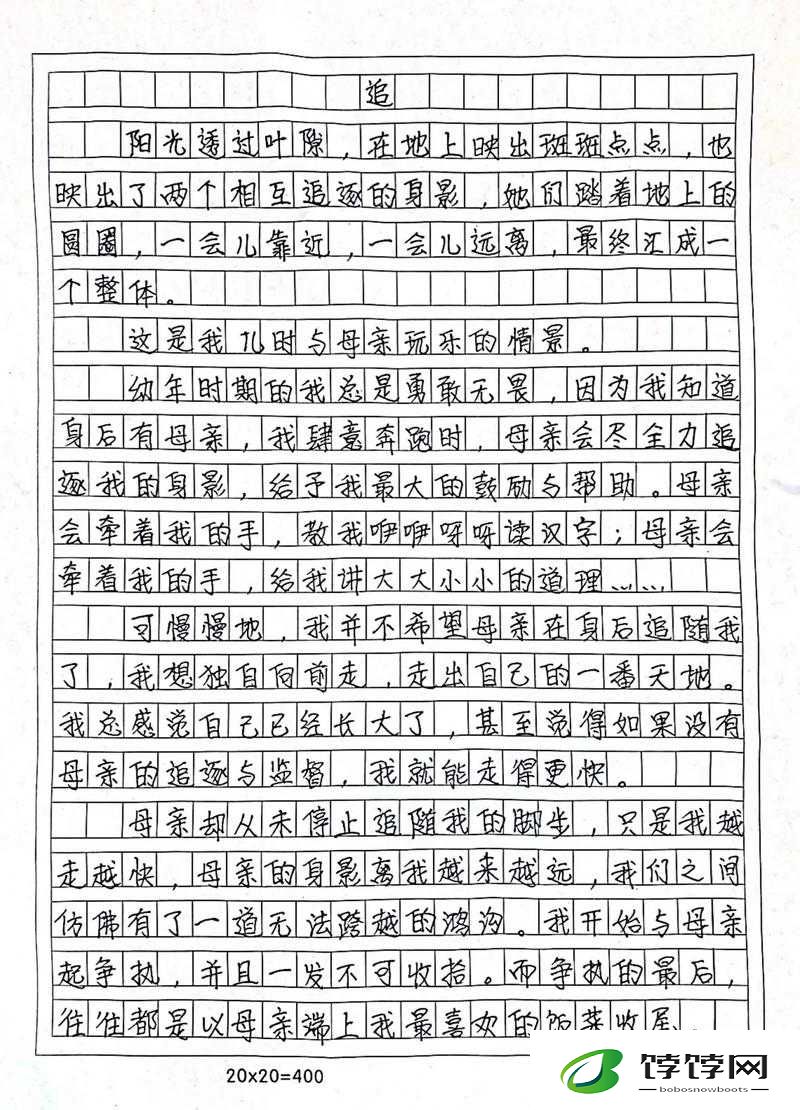 追
阳光透过叶隙，在地上映出斑斑点点，也
映出了两个相互追逐的身影，她们踏着地上的
圆圈，一会儿靠近，一会儿远离，最终汇成一
个整体。
这是我儿时与母亲玩乐的情景。
幼年时期的我总是勇敢无畏，因为我知道
身后有母亲，我肆意奔跑时，母亲会尽全力追
逐我的身影，给予我最大的鼓励与帮助。母亲
会牵着我的手，教我咿咿呀呀读汉字；母亲会
牵着我的手，给我讲大大小小的道理……
可慢慢地，我并不希望母亲在身后追随我
了，我想独自向前走，走出自己的一番天地。
我总感觉自己已经长大了，甚至觉得如果没有
母亲的追逐与监督，我就能走得更快。
母亲却从未停止追随我的脚步，只是我越
走越快，母亲的身影离我越来越远，我们之间
仿佛有了一道无法跨越的鸿沟。我开始与母亲
起争执，并且一发不可收拾。而争执的最后，
往往都是以母亲端上我最喜欢的饭菜收尾。
20x20=400
饽饽网
bobosnowboots